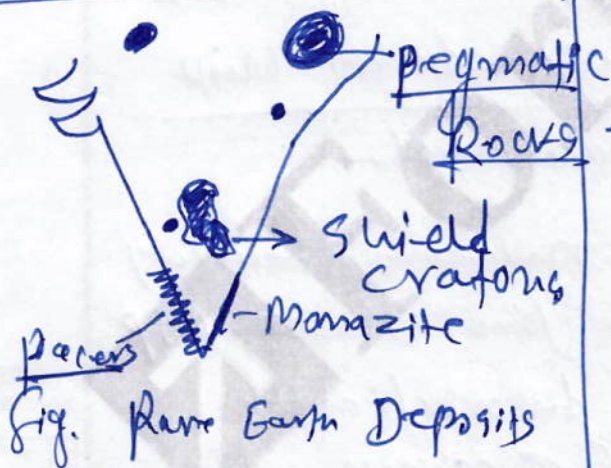 pegmatic
Rocks
shield
cratons
Monazite
Pacers
Fig. Rare Earth Deposits